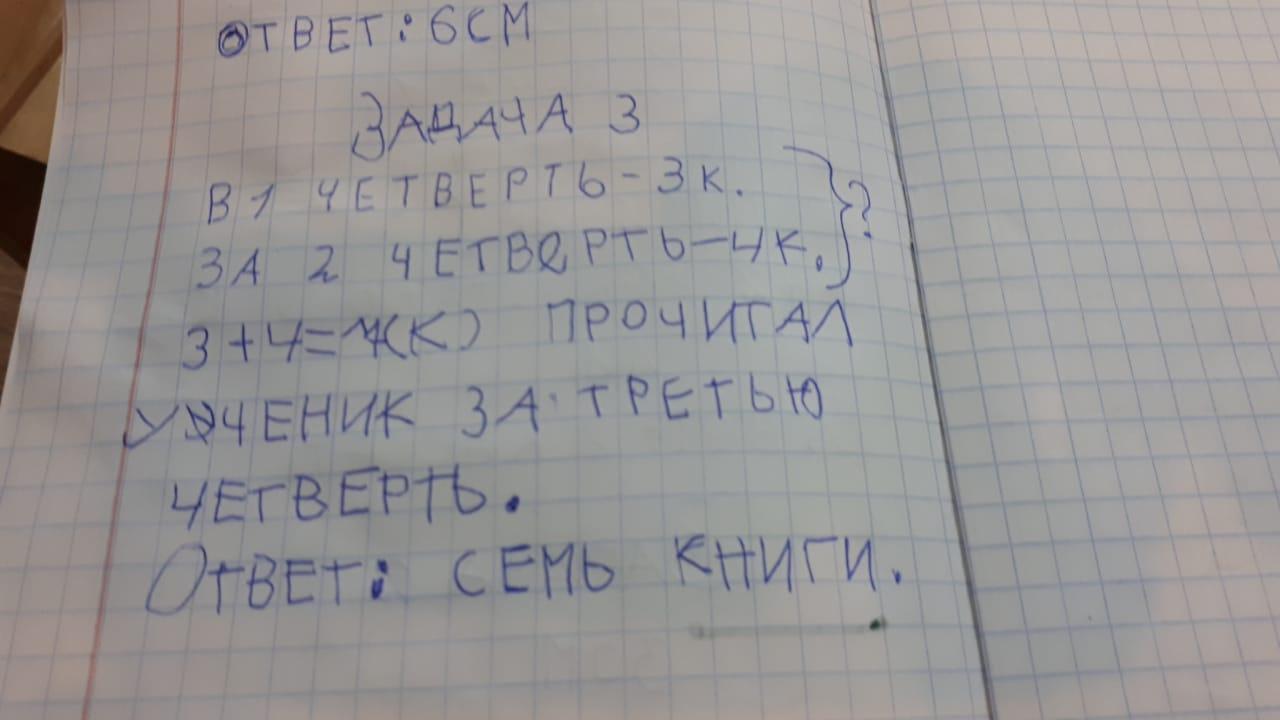 ОТВЕТ: 6СМ
ЗАДАЧА 3
В 1 ЧЕТВЕРТЬ - 3 К. } ?
ЗА 2 ЧЕТВЕРТЬ - 4 К.
3 + 4 = 7(К) ПРОЧИТАЛ
УЧЕНИК ЗА ТРЕТЬЮ
ЧЕТВЕРТЬ.
ОТВЕТ: СЕМЬ КНИГИ.